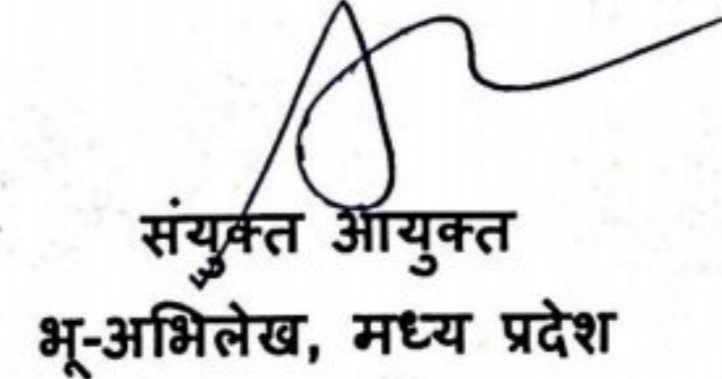 संयुक्त आयुक्त
भू-अभिलेख, मध्य प्रदेश